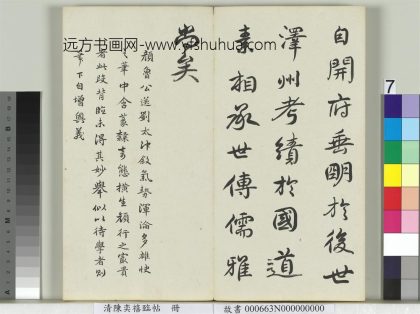 自開府垂明於後世
澤州考績於國道
素相承世傳儒雅
尚矣
顏魯公送劉太沖敘氣勢渾淪多雄快
之筆中含篆隸奇態橫生顏行之富貴
者此段皆臨未得其妙舉似以待學者則
筆下自增興義
远方书画网-www.yishuhua.com
7
清陳奕禧臨帖 冊
故書 000663N000000000